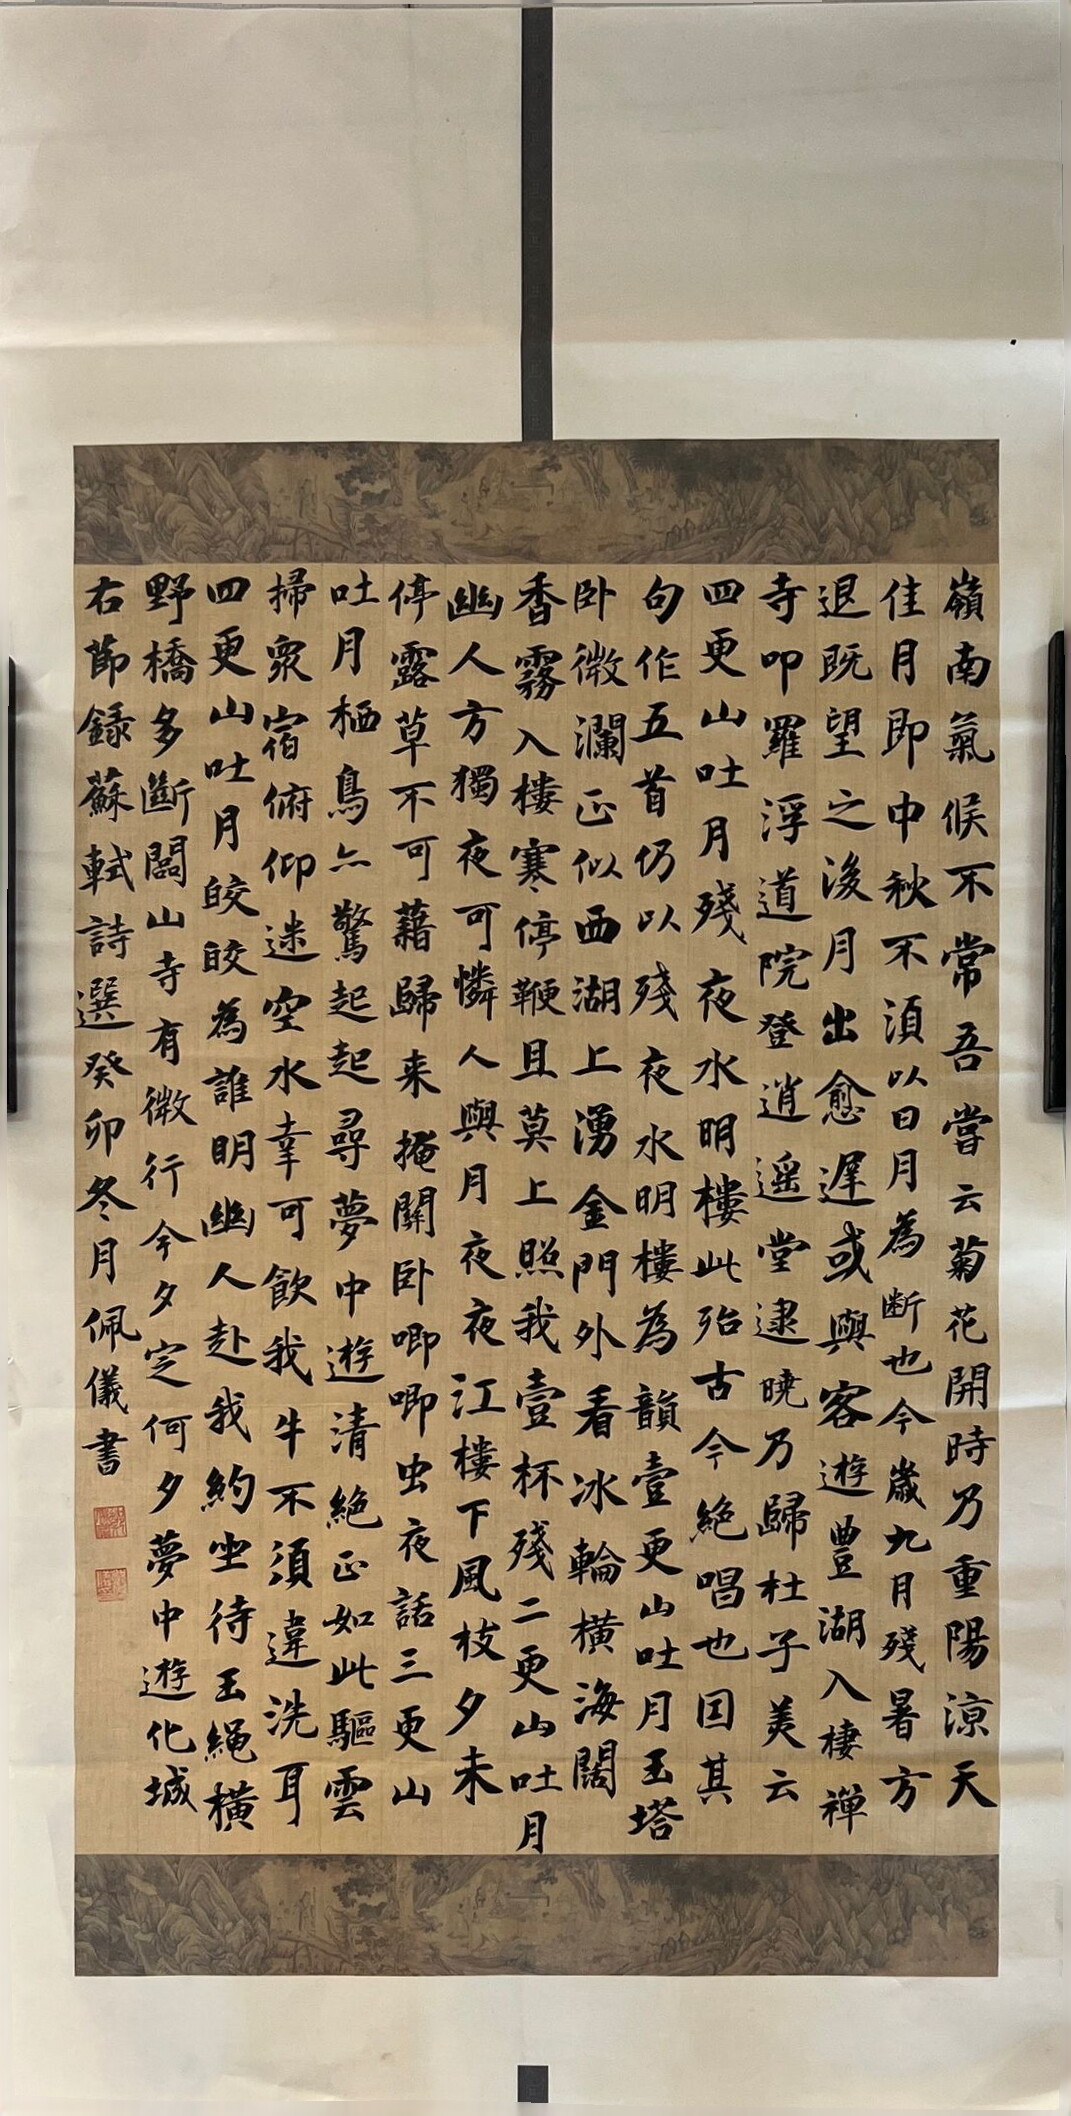 嶺南氣候不常吾嘗云菊花開時乃重陽涼天
佳月即中秋不須以日月為断也今歲九月殘暑方
退既望之後月出愈遲或與客遊豐湖入棲禪
寺叩羅浮道院登逍遥堂逮曉乃歸杜子美云
四更山吐月殘夜水明樓此殆古今絶唱也因其
句作五首仍以殘夜水明樓為韻壹更山吐月玉塔
卧微瀾正似西湖上湧金門外看冰輪橫海闊
香霧入樓寒停鞭且莫上照我壹杯殘二更山吐月
幽人方獨夜可憐人與月夜夜江樓下風枝夕未
停露草不可藉歸来掩關卧唧唧虫夜話三更山
吐月栖鳥亦驚起起尋夢中遊清絶正如此驅雲
掃衆宿俯仰迷空水幸可飲我牛不須違洗耳
四更山吐月皎皎為誰明幽人赴我約坐待玉繩橫
野橋多斷闆山寺有微行今夕定何夕夢中遊化城
右節録蘇軾詩選癸卯冬月佩儀書